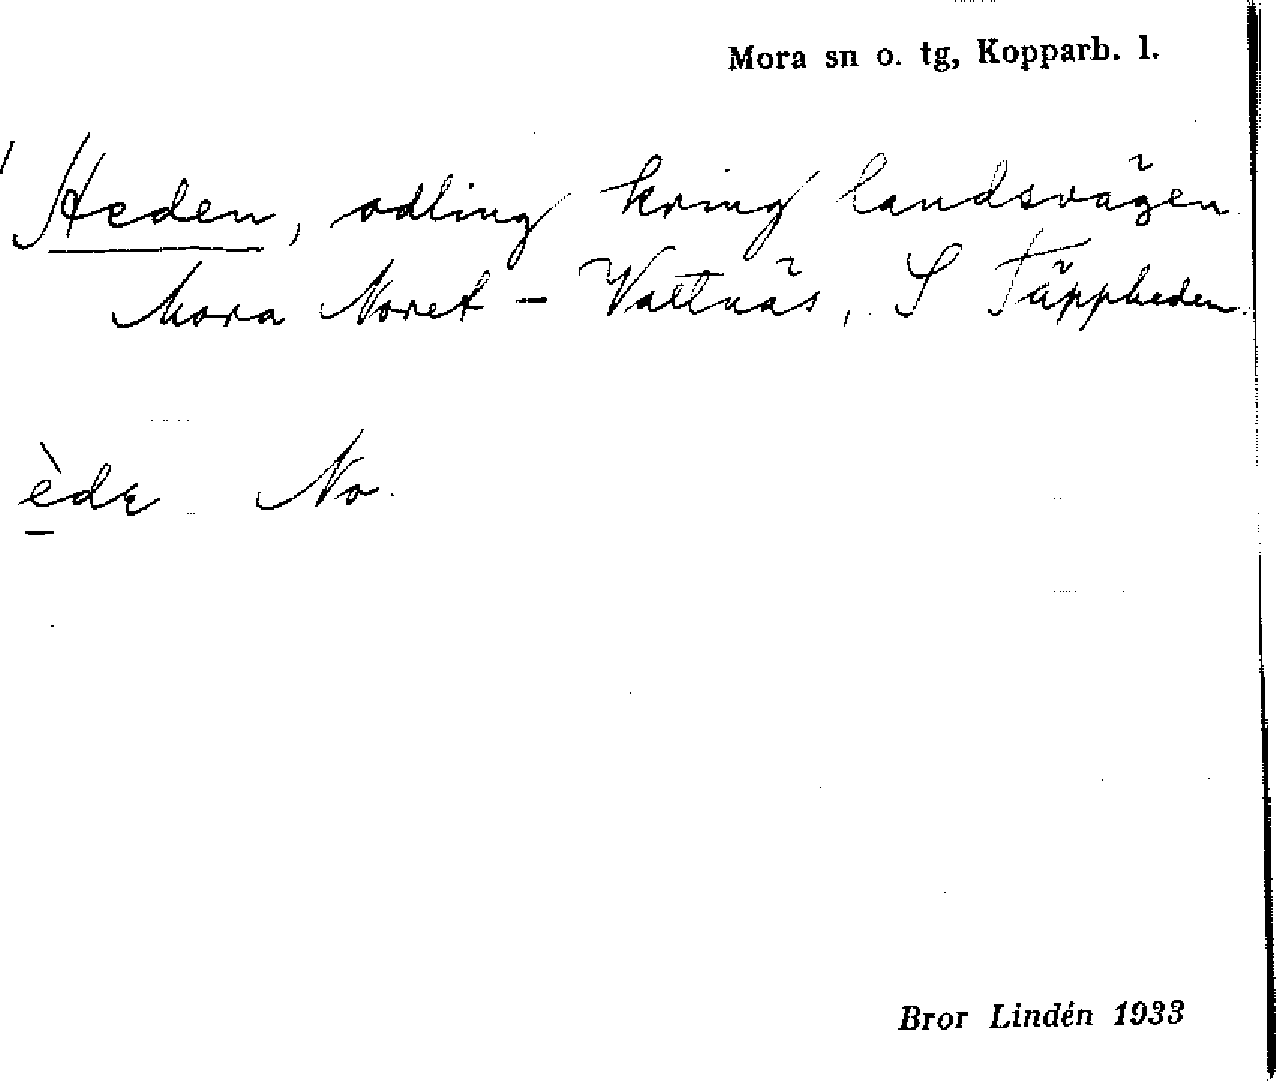 Mora sn o. tg, Kopparb. l.
Heden, odling kring landsvägen
Mora Noret - Vattnäs, S Täppheden.
No.
Bror Lindén 1933